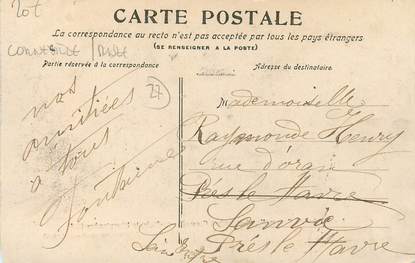 20t
CARTE POSTALE
La correspondance au recto n'est pas acceptée par tous les pays étrangers
(SE RENSEIGNER A LA POSTE)
Partie réservée à la correspondance
Adresse du destinataire
27
nos
amitiées
à tous
Fontaine
Mademoiselle
Raymonde Henry
rue d'oran
Près le Havre
Sanvic
Près le Havre